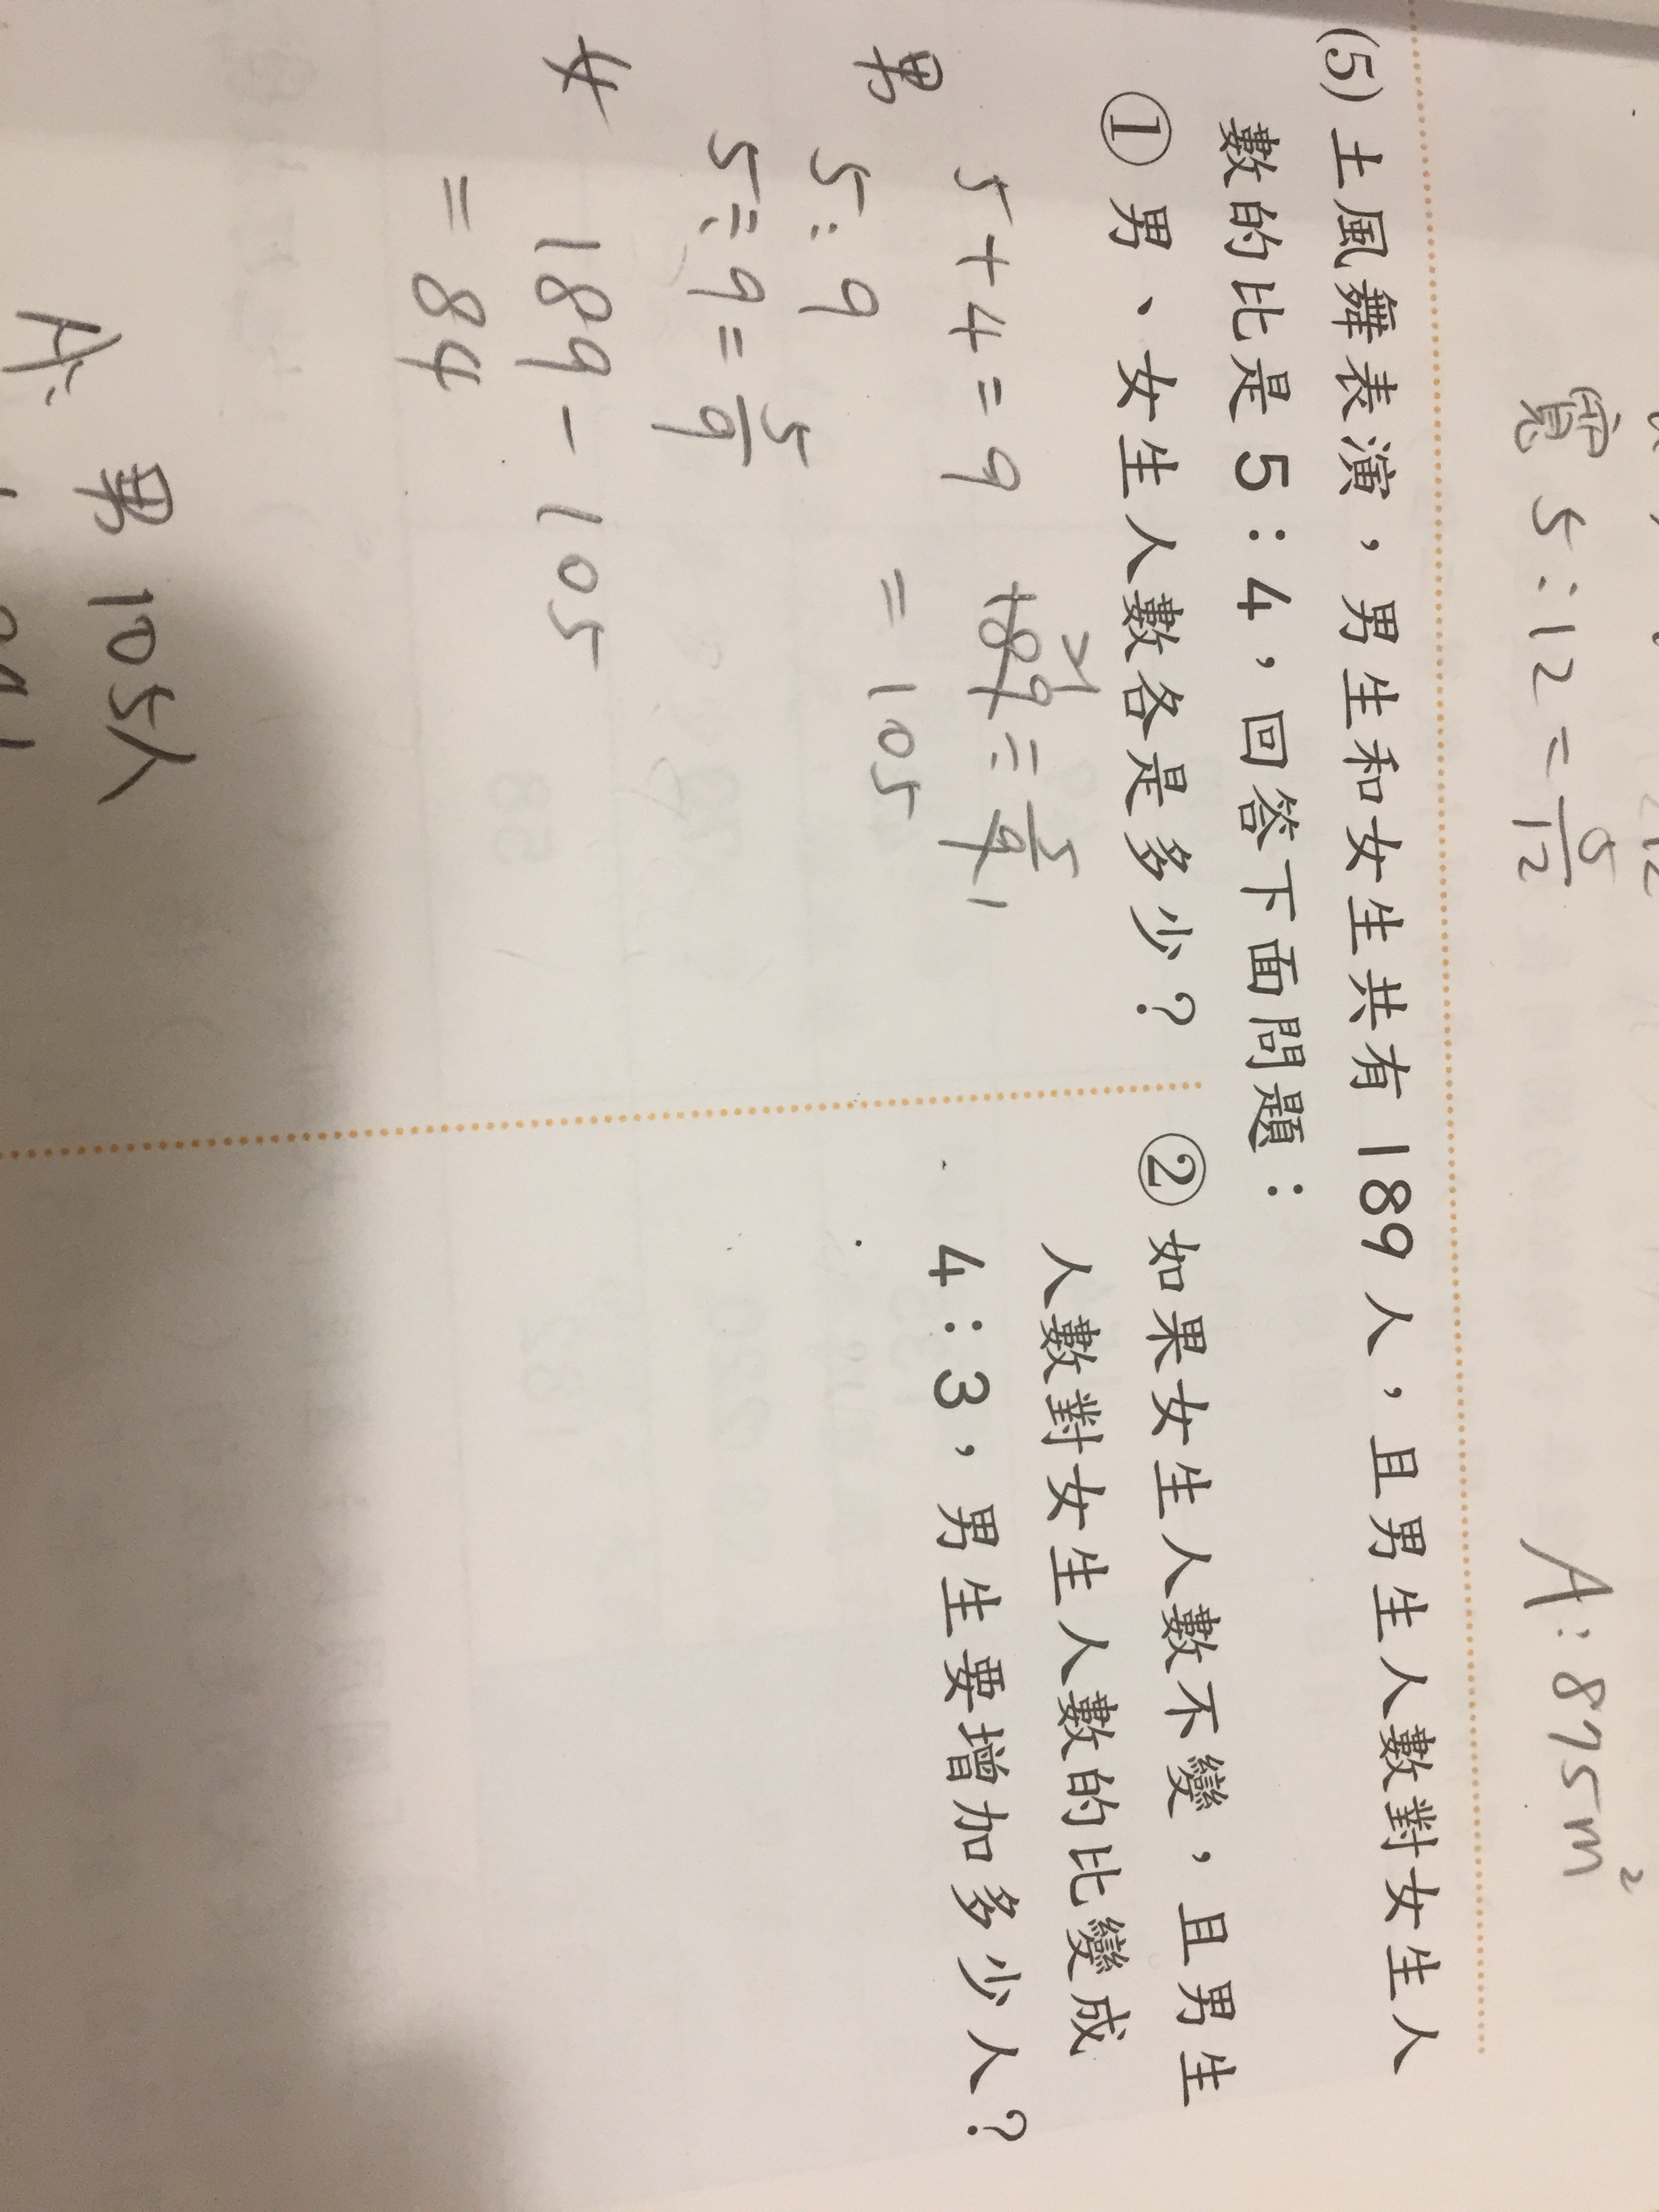 寬 5:12=5/12
A:875m²
(5) 土風舞表演，男生和女生共有 189 人，且男生人數對女生人
數的比是 5：4，回答下面問題：
① 男、女生人數各是多少？
5+4=9
21
189=5/9 1
=105
男 5:9
5÷9=5/9
女 189-105
=84
A: 男 105人
② 如果女生人數不變，且男生
人數對女生人數的比變成
4：3，男生要增加多少人？